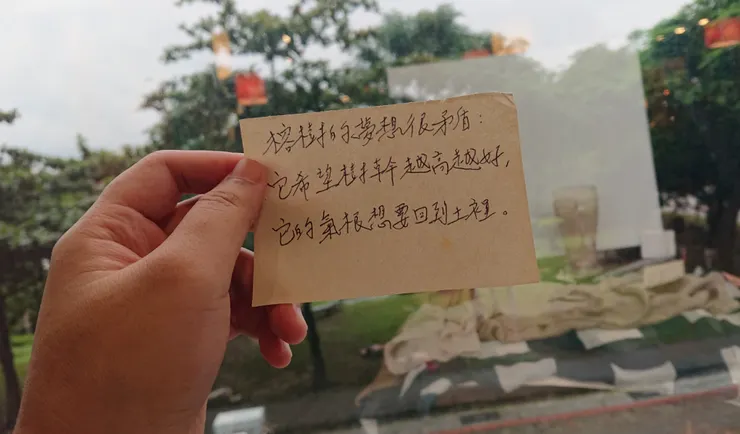 榕樹的夢想很矛盾：
它希望樹幹越高越好，
它的氣根想要回到土裡。